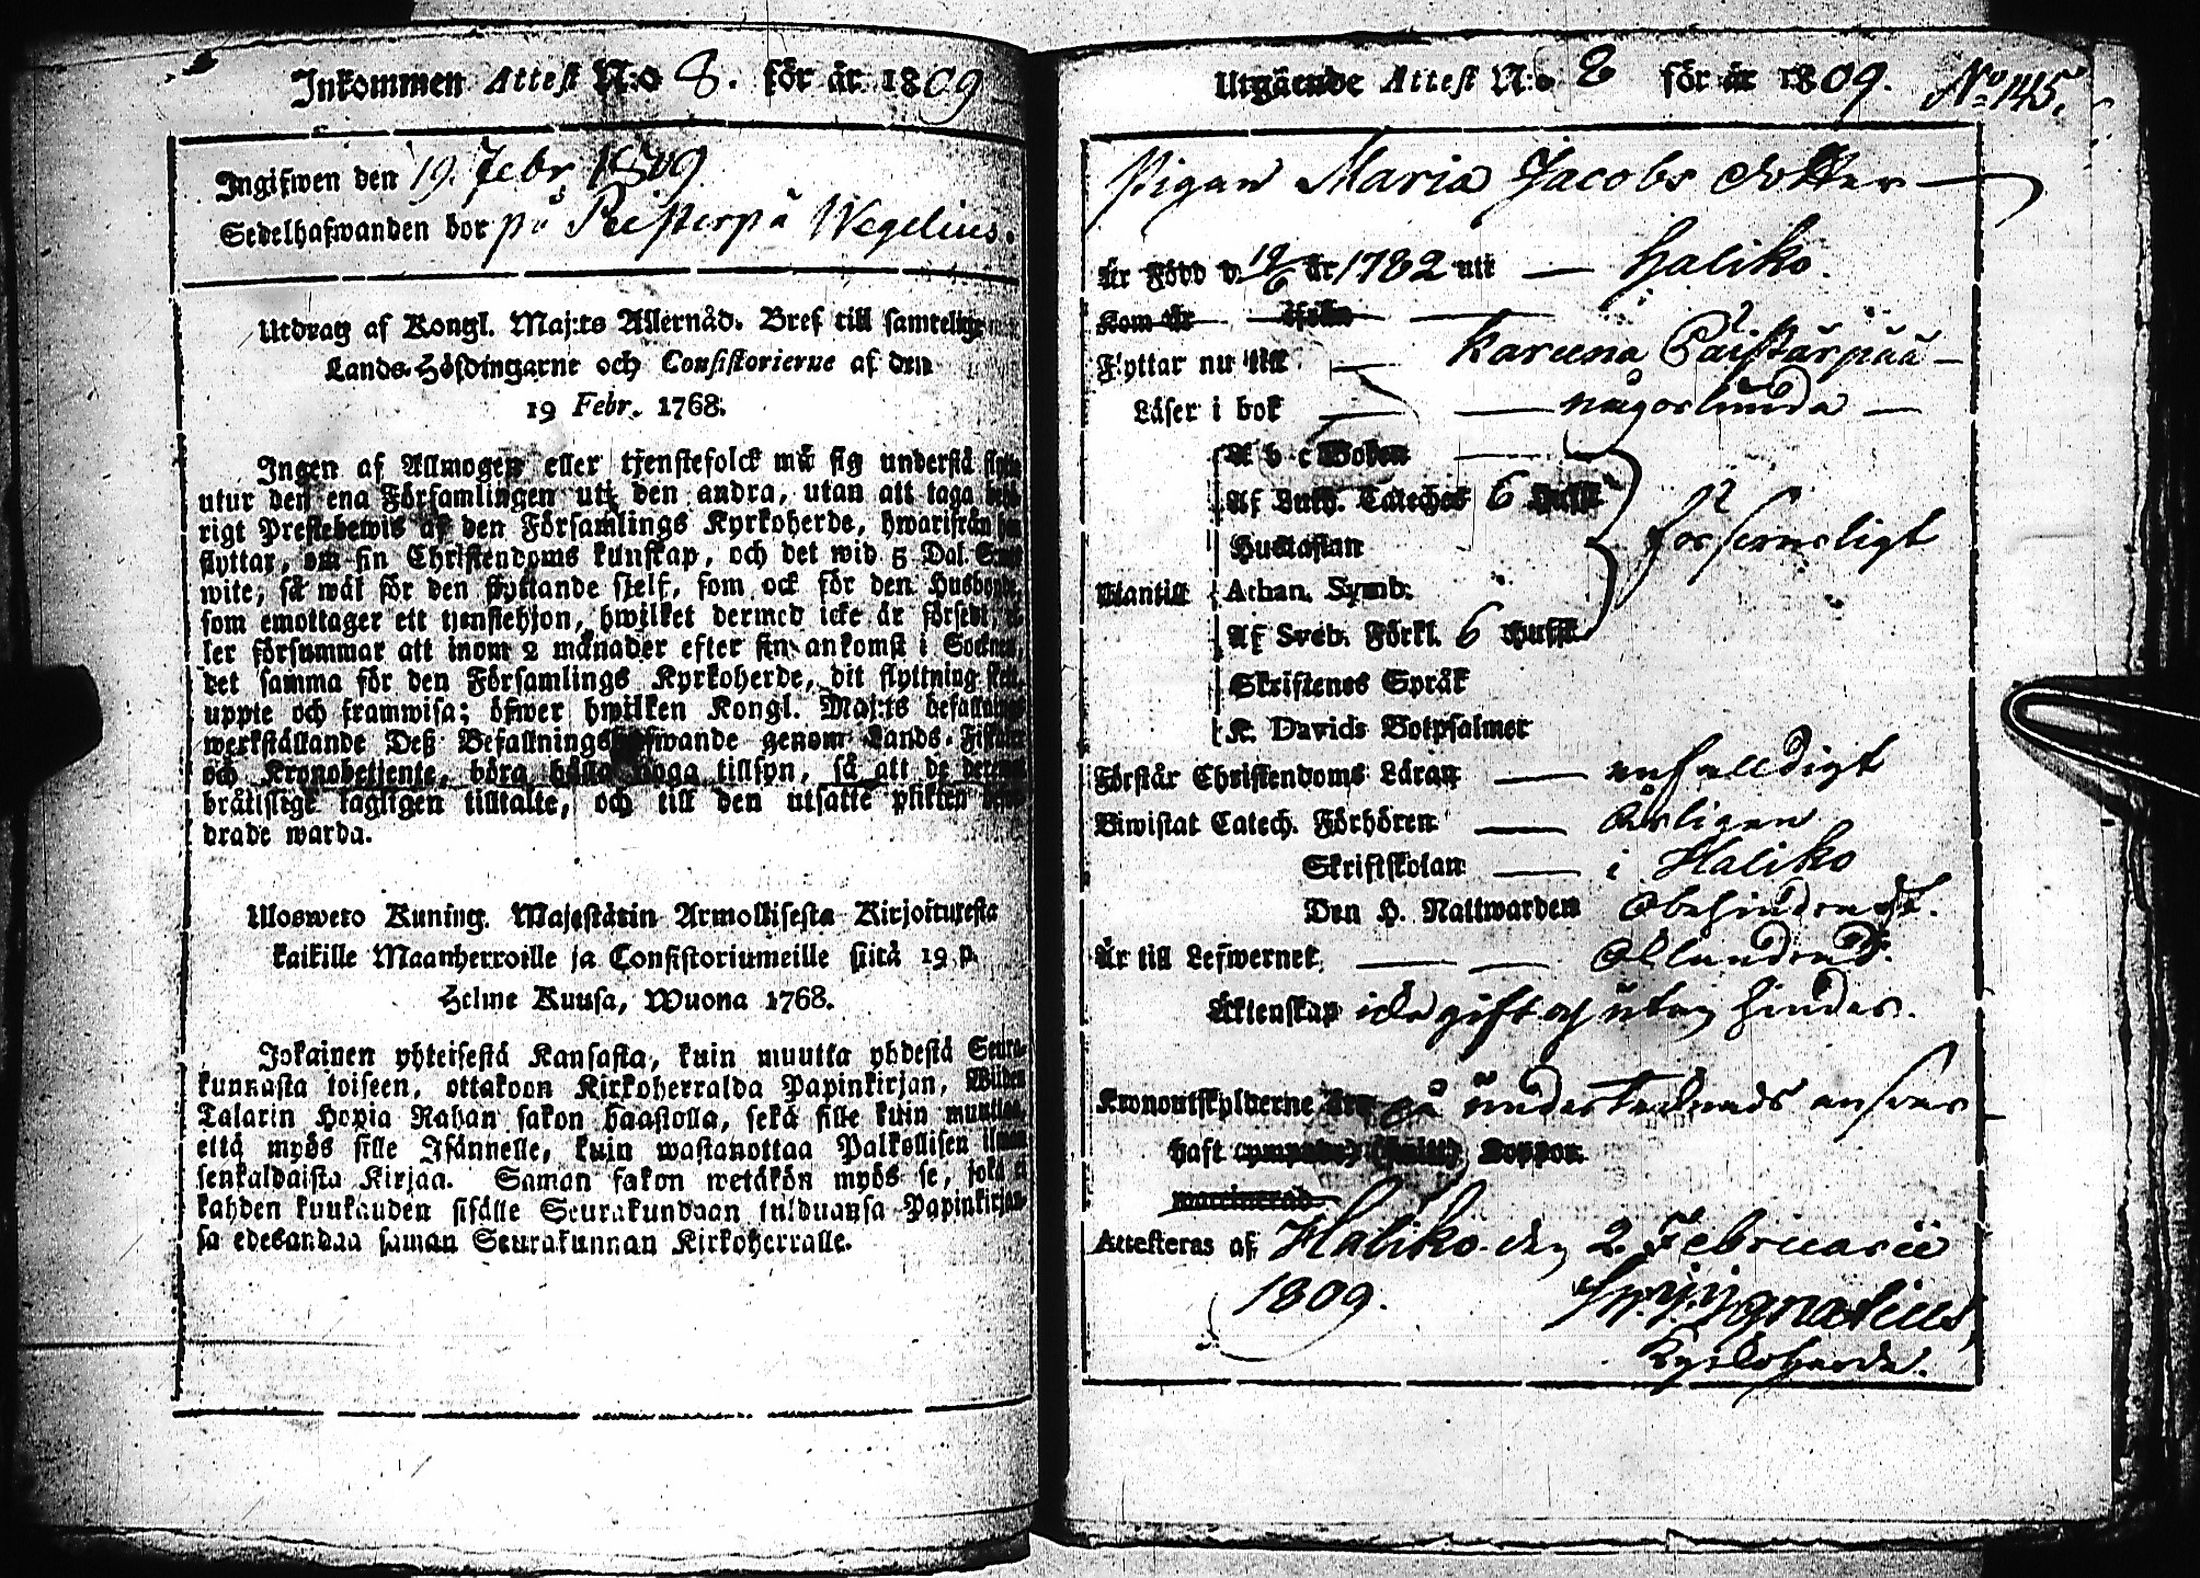 Inkommen Attest N:o 8. för år 1809
Ingifwen den 19. Febr 1809
Sedelhafwanden bor på Peisterpä Wegelius.
Utdrag af Kongl. Maj:ts Allernåd. Bref till samtelige
Lands-Höfdingarne och Consistorierne af den
19 Febr. 1768.
Ingen af Allmogen eller tjenstefolck må sig understå
utur den ena Församlingen uti den andra, utan att taga
rigt Prestebewis af den Församlings Kyrkoherde, hwarifrån
flyttar, om sin Christendoms kunskap, och det wid 5 Dal.
wite, så wäl för den flyttande sjelf, som ock för den Husbonde,
som emottager ett tjenstehjon, hwilket dermed icke är försedt,
ler försummar att inom 2 månader efter sin ankomst i Socknen,
det samma för den Församlings Kyrkoherde, dit flyttning
uppte och framwisa; öfwer hwilken Kongl. Maj:ts befallnings
werkställande Deß Befallningshafwande genom Lands-Fiskaler
och Kronobetjente, böra hålla noga tillsyn, så att de
bråtslige lagligen tilltalte, och till den utsatte plikten
drade warda.
Uloswero Kuning. Majestätin Armollisesta Kirjoituxesta
kaikille Maanherroille ja Consistoriumeille siitä 19 p.
Helme Kuusa, Wuona 1768.
Jokainen yhteisestä Kansasta, kuin muutta yhdestä Seura-
kunnasta toiseen, ottakoon Kirkoherralda Papinkirjan, Wiiden
Talarin Hopia Rahan sakon haastolla, sekä sille kuin muuttaa,
että myös sille Isännelle, kuin wastanottaa Palkollisen ilman
senkaldaista Kirjaa. Saman sakon wetäkön myös se, joka ei
kahden kuukauden sisälle Seurakundaan tulduansa Papinkirjan-
sa edesandaa saman Seurakunnan Kirkoherralle.
Utgående Attest N:o 8 för år 1809. No 145.
Pigan Maria Jacobs dotter
Är Född d. 19/6 år 1782 uti Haliko.
Kom år ifrån
Flyttar nu till Karuna Päistärpää
Läser i bok någorlunda
A b c Boken
Af Luth. Cateches 6 Huf.
Hustaflan försvarligt
Utantill Athan. Symb.
Af Sveb. Förkl. 6 Huf.
Skriftenes Språk
K. Davids Botpsalmer
Förstår Christendoms Läran enfalldigt
Biwistat Catech. Förhören årligen
Skriftskolan i Haliko
Den H. Nattwarden obehindradt.
Är till Lefwernet
Äktenskap icke gift och utan hinder.
Kronoutskylderne på undertecknads answar
haft Koppor.
waccinerad
Attesteras af Haliko den 2. Februarii
1809. Ignatius
Kyrkoherde.